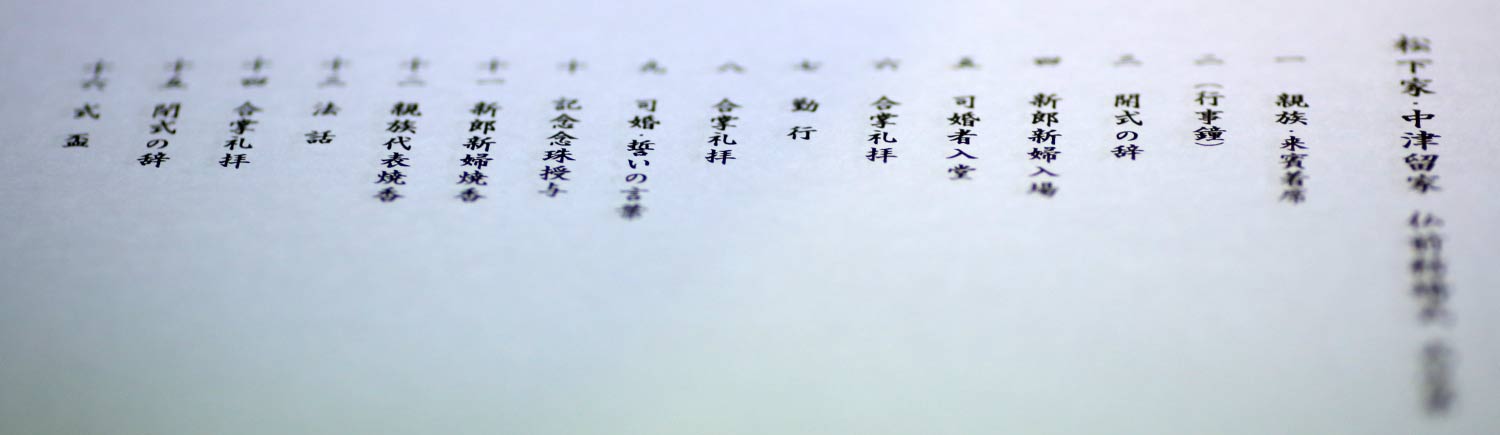 松下家・中津留家 仏前結婚式
一 親族・来賓着席
二 (行事鐘)
三 開式の辞
四 新郎新婦入場
五 司婚者入堂
六 合掌礼拝
七 勤行
八 合掌礼拝
九 司婚・誓いの言葉
十 記念念珠授与
十一 新郎新婦焼香
十二 親族代表焼香
十三 法話
十四 合掌礼拝
十五 閉式の辞
十六 式盃